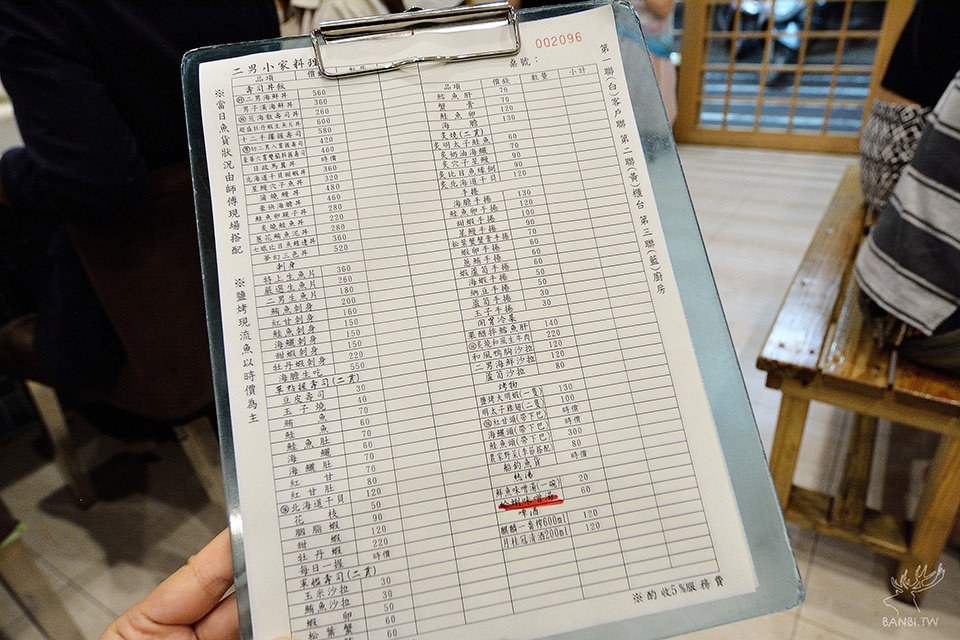 002096
二男小家料理
桌號：
品項 價錢 數量 小計
壽司丼飯
二男海鮮丼 560
男子漢海鮮丼 360
十二手握握壽司 580
日政萬丼 時價
北海道干貝甜蝦丼 360
星鰻穴子魚丼 320
蒲燒鰻丼 480
豪快海膽丼 460
鮭魚卵親子丼 280
炙燒鮭魚丼 220
蔥花鮪魚泥丼 280
七味比目魚鰭邊丼 360
夢幻三色丼 520
刺身
特上生魚片 360
嚴選生魚片 260
二男生魚片 180
鮪魚刺身 200
紅甘刺身 160
鮭魚刺身 150
海鱺刺身 150
甜蝦刺身 150
牡丹蝦刺身 220
海膽生吃 550
單點握壽司(二貫)
豆皮壽司 30
玉子燒 40
鮪魚 70
鮭魚 60
鮭魚肚 70
海鱺 60
海鱺肚 70
紅甘 70
紅甘肚 80
北海道干貝 120
花枝 50
胭脂蝦 90
甜蝦 120
牡丹蝦 220
每日一握 時價
軍艦壽司(二貫)
玉米沙拉 30
鮪魚沙拉 30
蝦卵 50
松葉蟹 60
品項 價錢 數量 小計
鱈魚肝 70
蟹膏 70
鮭魚卵 120
海膽 130
炙燒(二貫)
炙明太子鮭魚 60
炙奶油海鱺 70
炙穴子星鰻 90
炙比目魚緣側 130
炙北海道干貝 120
手捲
海膽手捲 130
鮭魚卵手捲 120
甜蝦手捲 100
星鰻手捲 90
松葉蟹蟹膏手捲 90
蝦卵手捲 60
蔥鮪手捲 60
蝦蘆筍手捲 60
海蝦手捲 50
納豆手捲 50
蘆筍手捲 30
玉子手捲 30
開胃冷菜
果醋拌鱈魚肝 140
炙燒和風生牛肉 220
和風鴨胸沙拉 120
二男海鮮沙拉 120
蘆筍沙拉 80
烤物
鹽烤大明蝦(一隻) 130
明太子雞翅(二隻) 100
紅甘頭(帶下巴) 時價
海鱺頭(帶下巴) 時價
鮭魚頭(帶下巴) 300
農家野菜(季節搭配) 80
船釣魚貨 時價
鮮魚味噌湯(一碗) 20
60
啤酒
麒麟一番搾600ml 120
月桂冠清酒200ml 120
※酌收5%服務費
※當日魚貨狀況由師傅現場搭配
※鹽烤現流魚以時價為主
第一聯(白)客戶聯 第二聯(黃)櫃台 第三聯(藍)廚房
BANBI.TW